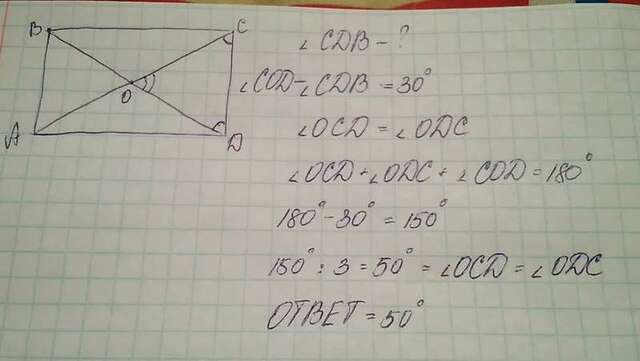 B C
O
A D
∠CDB - ?
∠COD - ∠CDB = 30°
∠OCD = ∠ODC
∠OCD + ∠ODC + ∠COD = 180°
180° - 30° = 150°
150° : 3 = 50° = ∠OCD = ∠ODC
ОТВЕТ = 50°